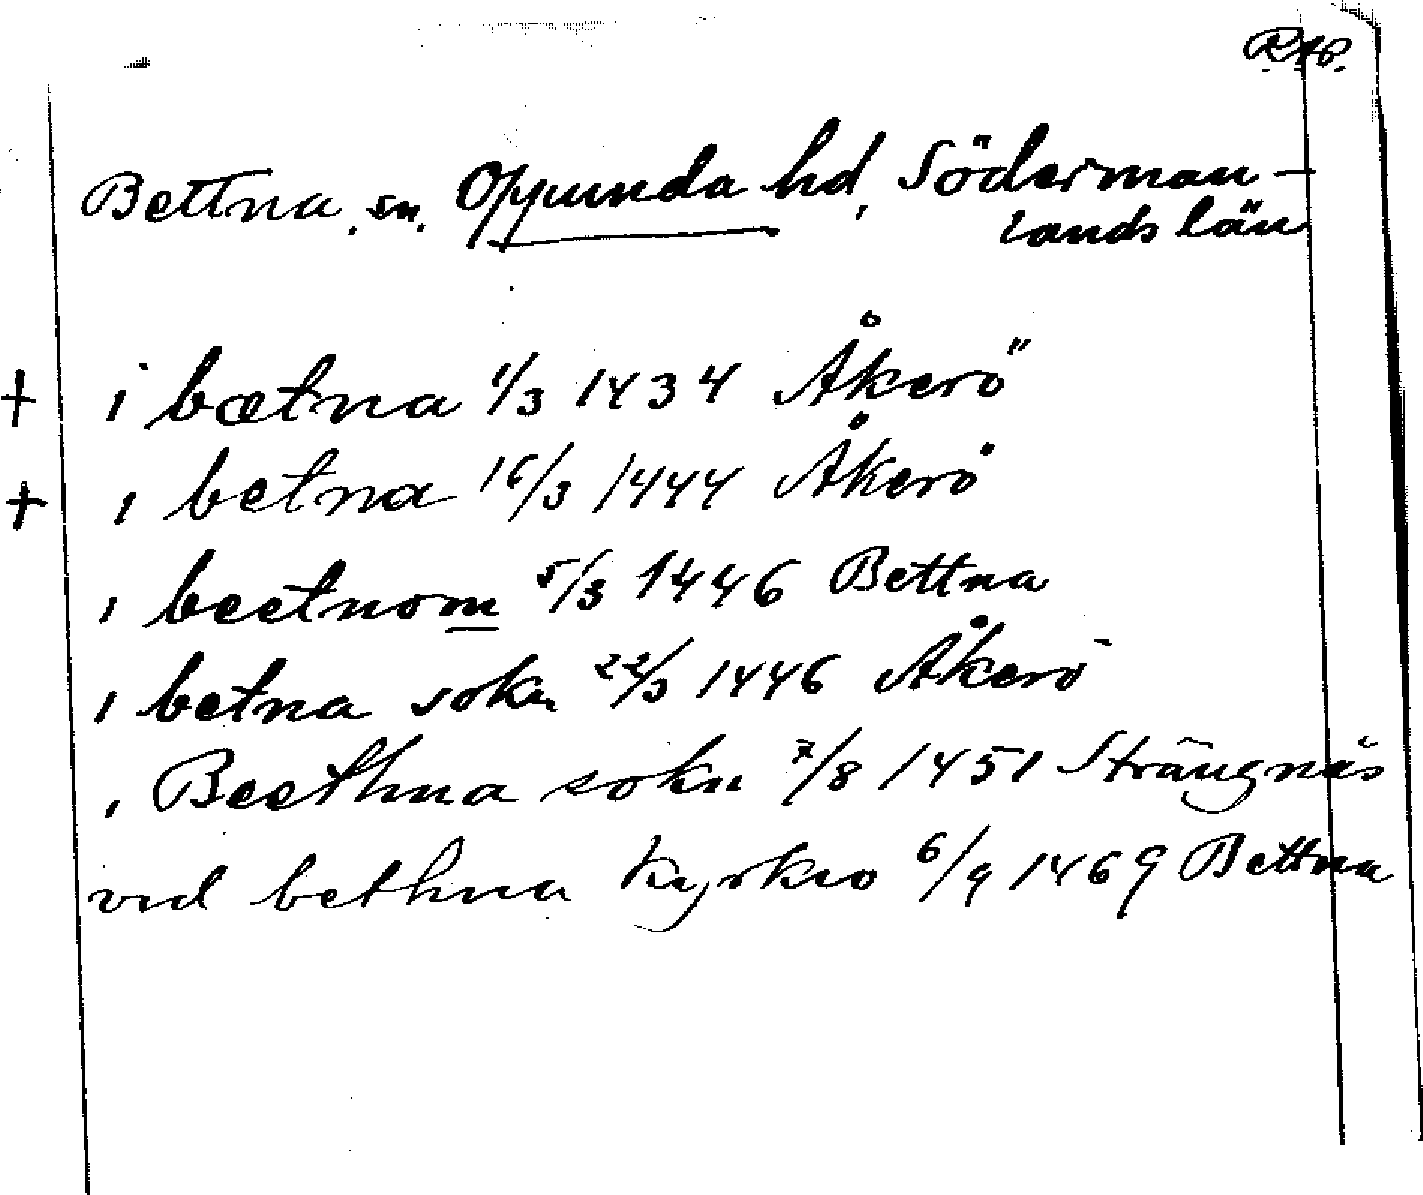 RAP.
Bettna. sn. Oppunda hd, Söderman-
lands län
+ i bætna 1/3 1434 Åkerö
+ i betna 16/3 1444 Åkerö
i beetnom 5/3 1446 Bettna
i betna sokn 22/3 1446 Åkerö
i Beethna sokn 7/8 1451 Strängnäs
vid bethna kyrkio 6/9 1469 Bettna